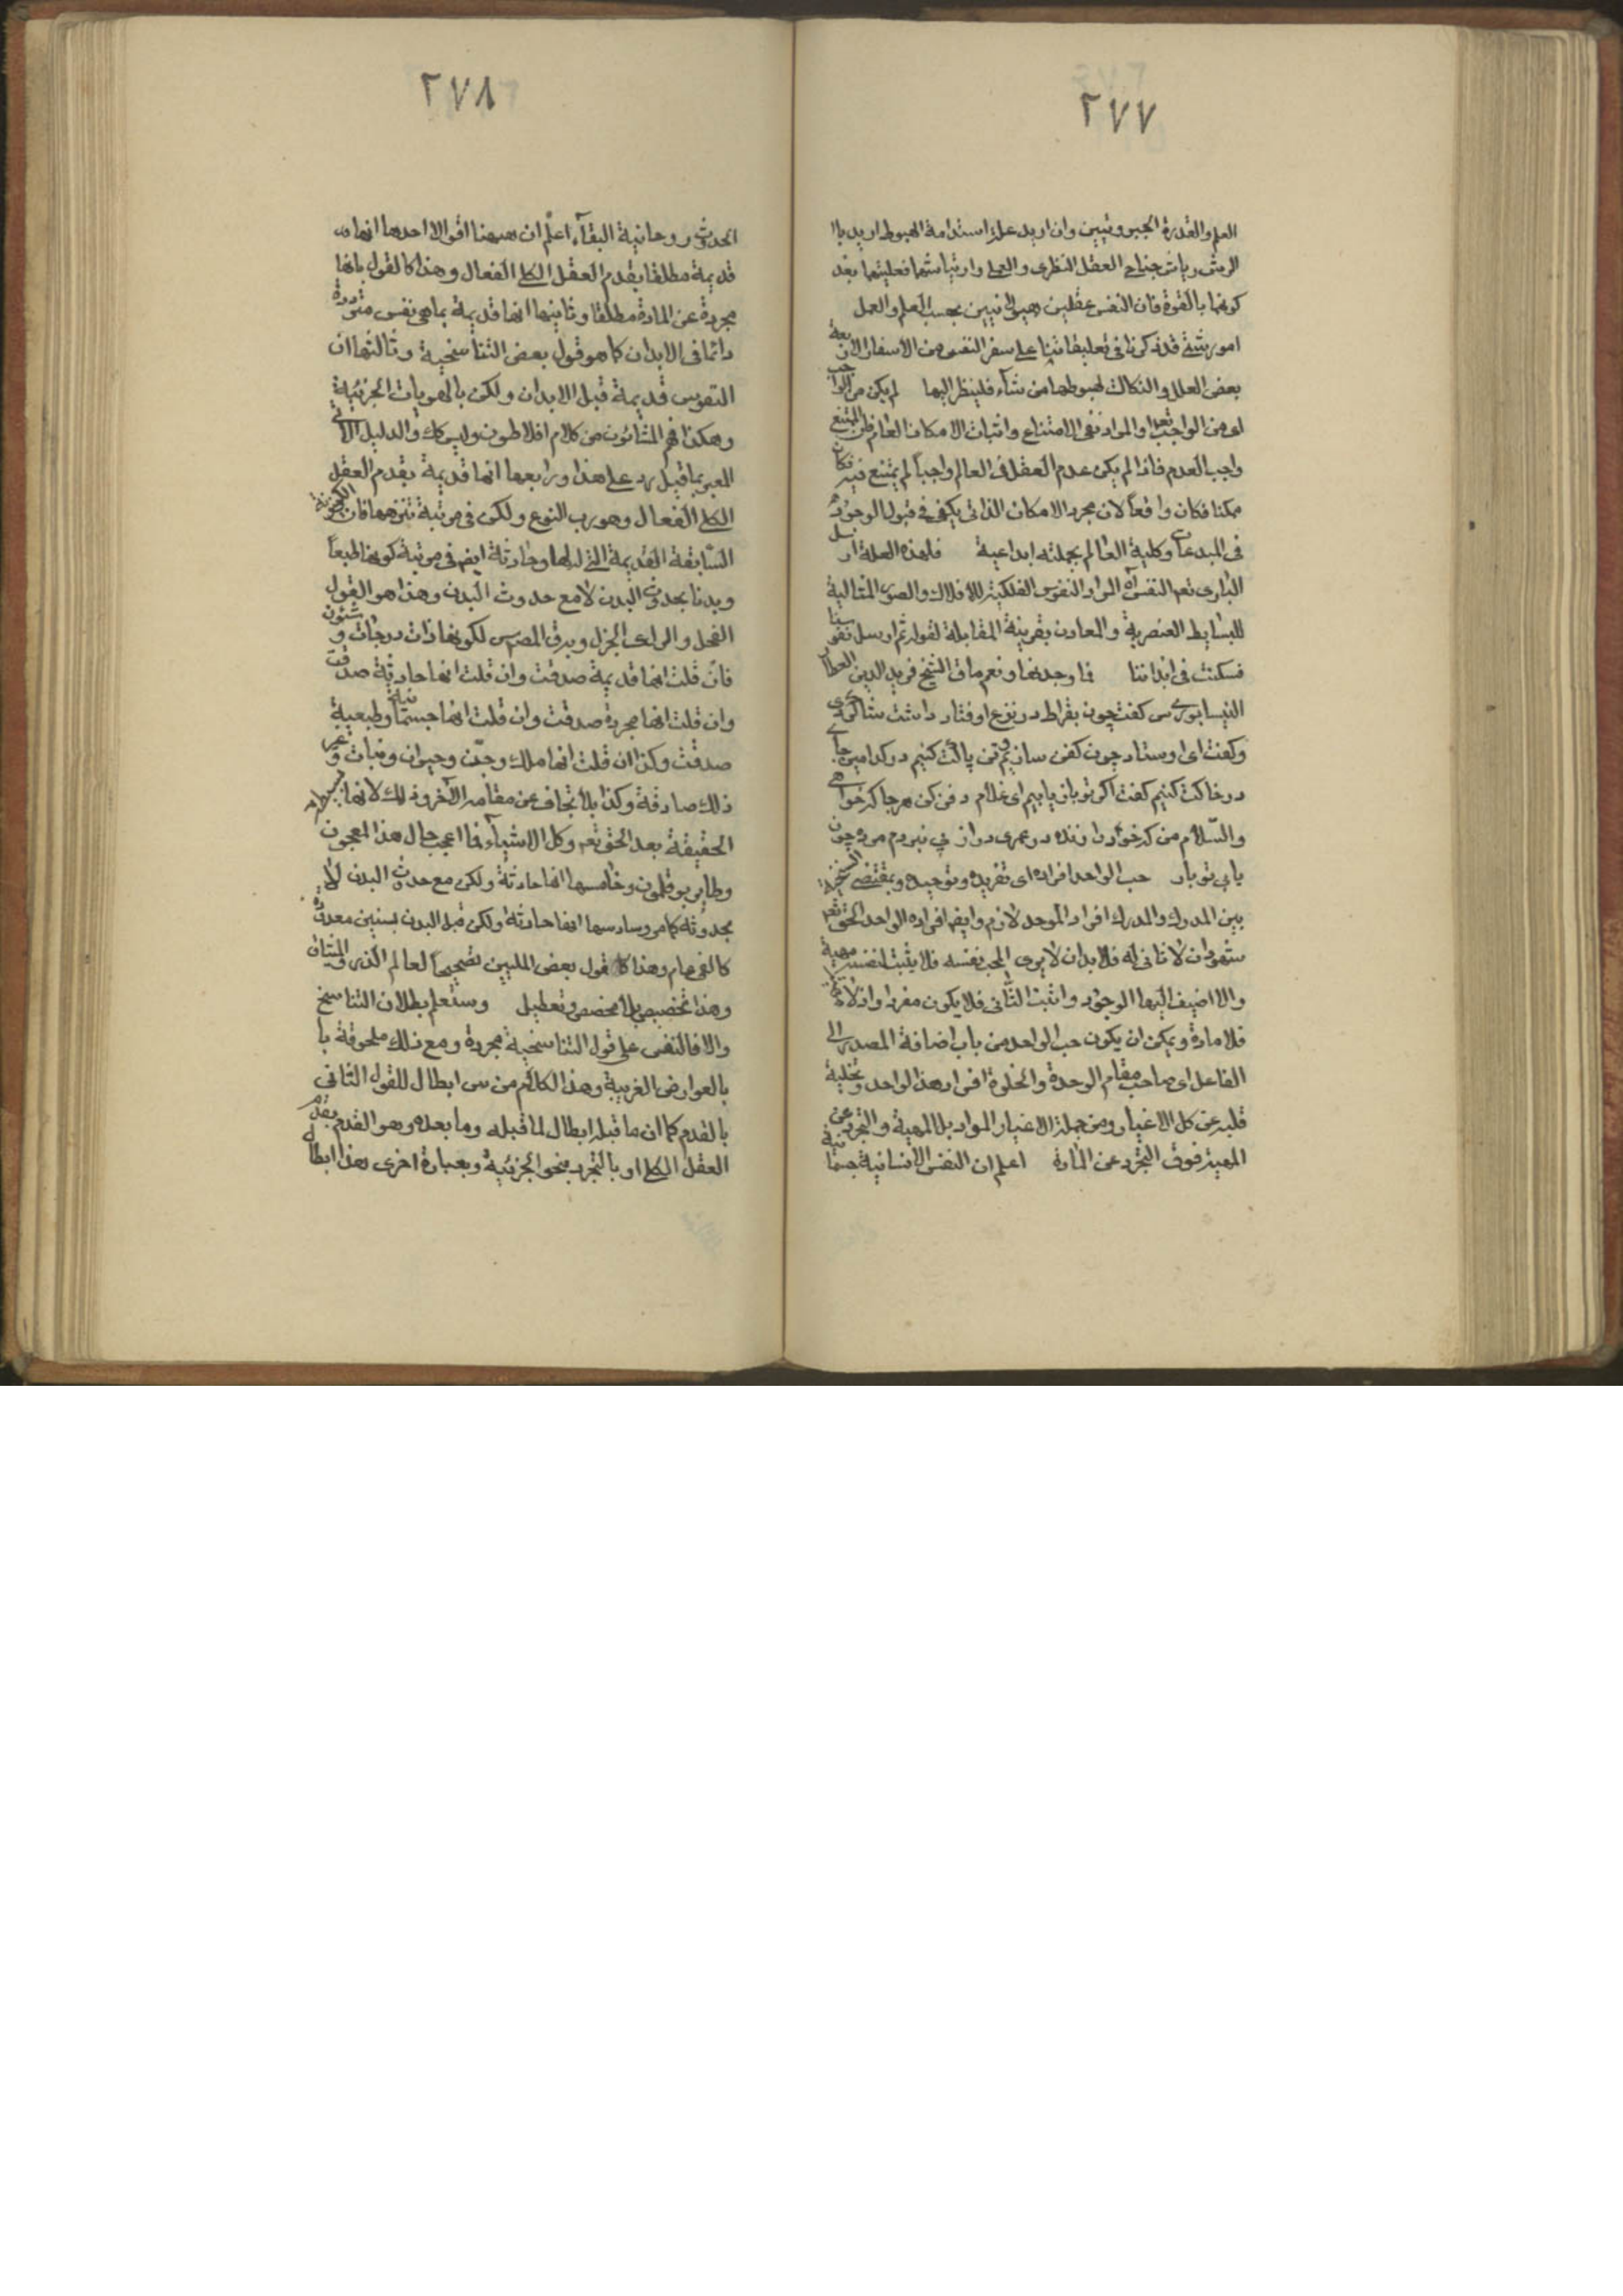 ٢٧٧
العلم والقدرة الجبروتيين وان اريد علل استدامة الهبوط اريد باا
الريش رياش جناحى العقل النظرى والعملى وارتياشهما فعليتهما بعد
كونهما بالقوة فان النفس عقلين هيولانيين بحسب العلم والعمل
امور شتى قد ذكرنا فى تعليقاتنا على سفر النفس من الاسفار الاربعة
بعض العلل والنكات لهبوطها من شاء فلينظر اليها لم يكن من الواجب
اى من الواجب تعالى والمراد نفى الامتناع واثبات الامكان العام فان الممتنع
واجب العدم فاذا لم يكن عدم العقل فى العالم واجباً لم يمتنع فيه فكان
ممكنا فكان واقعاً لان مجرد الامكان الذاتى يكفى فى قبول الوجود
فى المبدعات وكلية العالم بجملته ابداعية فلهذه العلة ارسل
البارى تعالى النفس اه المراد النفوس الفلكية للافلاك والصور المثالية
للبسايط العنصرية والمعادن بقرينة المقابلة لقوله ثم ارسل نفوسنا
فسكنت فى ابداننا فاوجدنها ونعم ما قال الشيخ فريد الدين العطار
النيسابورى س كفت چون بقراط در نزع اوفتاد داشت شاكردى
وكفت اى اوستاد چون كفن سازيم وتن پاكت كنيم در كدامين جاى
در خاكت كنيم كفت اكر تو باز يابيم اى غلام دفن كن هر جا كه خواهى
والسّلام من كه خود را زنده در عمرى دراز پى نبردم مرده چون
يابى تو باز حب الواحد افراده اى تفريده وتوحيده وبمقتضى السنخية
بين المدرك والمدرك افراد الموحد لازم وايضا افراده الواحد الحق تعالى
شهود ان لا ثانى له فلا بد ان لا يرى المحب نفسه فلا يثبت لنفسه مهية
والا اضيف اليها الوجود واثبت الثانى فلا يكون مفردا واذ لا مهية
فلا مادة ويمكن ان يكون حب الواحد من باب اضافة المصدر الى
الفاعل اى صاحب مقام الوحدة والخلوة افراد هذا الواحد وتخلية
قلبه عن كل الاغيار ومن جملة الاغيار المواد بل المهية والتجرد عن
المهية فوق التجرد عن المادة اعلم ان النفس الانسانية جسمانية
٢٧٨
الحدوث روحانية البقاء اعلم ان ههنا اقوالا احدها انها
قديمة مطلقا بقدم العقل الكلى الفعال وهذا كالقول بانها
مجردة عن المادة مطلقا وثانيها انها قديمة بما هى نفس مترددة
دائما فى الابدان كما هو قول بعض التناسخية وثالثها ان
النفوس قديمة قبل الابدان ولكن بالهويات الجزئية
وهكذا فهم المشائون من كلام افلاطون وليس كك والدليل الآتى
المعبر بما قيل رد على هذا ورابعها انها قديمة بقدم العقل
الكلى الفعال وهو رب النوع ولكن فى مرتبة تنزهها فان الكينونة
السّابقة القديمة التى لها وحادثة ايضا فى مرتبة كونها طبعاً
وبدنا بحدوث البدن لا مع حدوث البدن وهذا هو القول
الفحل والراى الجزل ويرق المصرس لكونها ذات درجات وشئون
فان قلت انها قديمة صدقت وان قلت انها حادثة صدقت
وان قلت انها مجردة صدقت وان قلت انها جسمانية وطبعية
صدقت وكذا ان قلت انها ملك وجنّ وحيوان ونبات وغير
ذلك صادقة وكذا بلا تجاف عن مقامه الآخر وذلك لانها بسيطة
الحقيقة بعد الحق تعالى وكل الاشياء فما اعجب حال هذا المعجون
وطاير بوقلمون وخامسها انها حادثة ولكن مع حدوث البدن لا
بحدوثه كما مر وسادسها انها حادثة ولكن قبل البدن بسنين معدودة
كالفى عام وهذا كما قول بعض المليين تصحيحاً لعالم الذر والميثاق
وهذا تخصيص بلا مخصص وتعطيل وستعلم بطلان التناسخ
والا فالنفس على قول التناسخية مجردة ومع ذلك ملحوقة با
بالعوارض الغريبة وهذا الكلام من س ابطال للقول الثانى
بالقدم كما ان ما قبله ابطال لما قبله وما بعده وهو القدم بقدم
العقل الكلى او بالتجرد بنحو الجزئية وبعبارة اخرى هذا ابطال